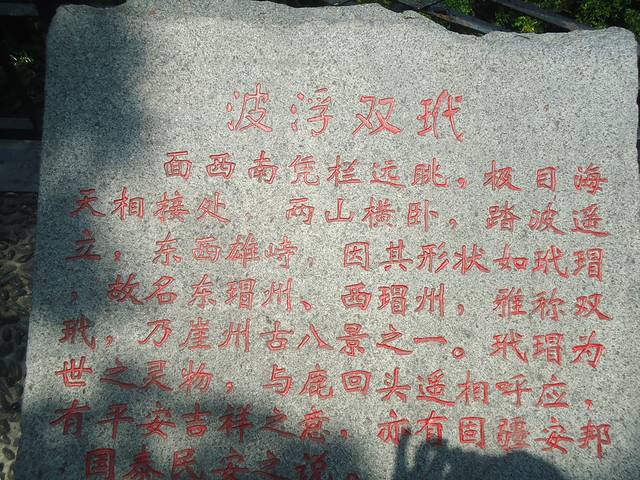 波浮双玳
面西南凭栏远眺，极目海
天相接处，两山横卧，踏波遥
立，东西雄峙，因其形状如玳瑁
，故名东瑁州、西瑁州，雅称双
玳，乃崖州古八景之一。玳瑁为
世之灵物，与鹿回头遥相呼应，
有平安吉祥之意，亦有固疆安邦
国泰民安之说。